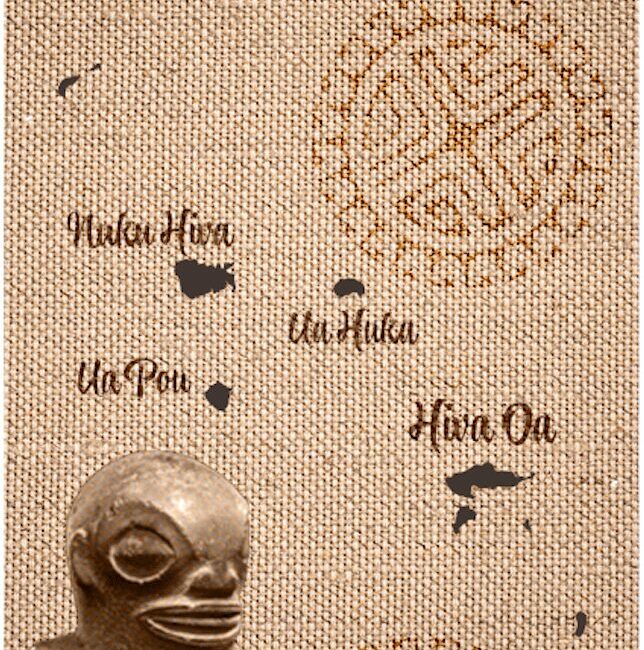 Nuku Hiva
Ua Huka
Ua Pou
Hiva Oa